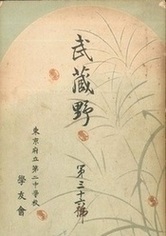 武蔵野
第三十六號
東京府立第二中學校
學友會